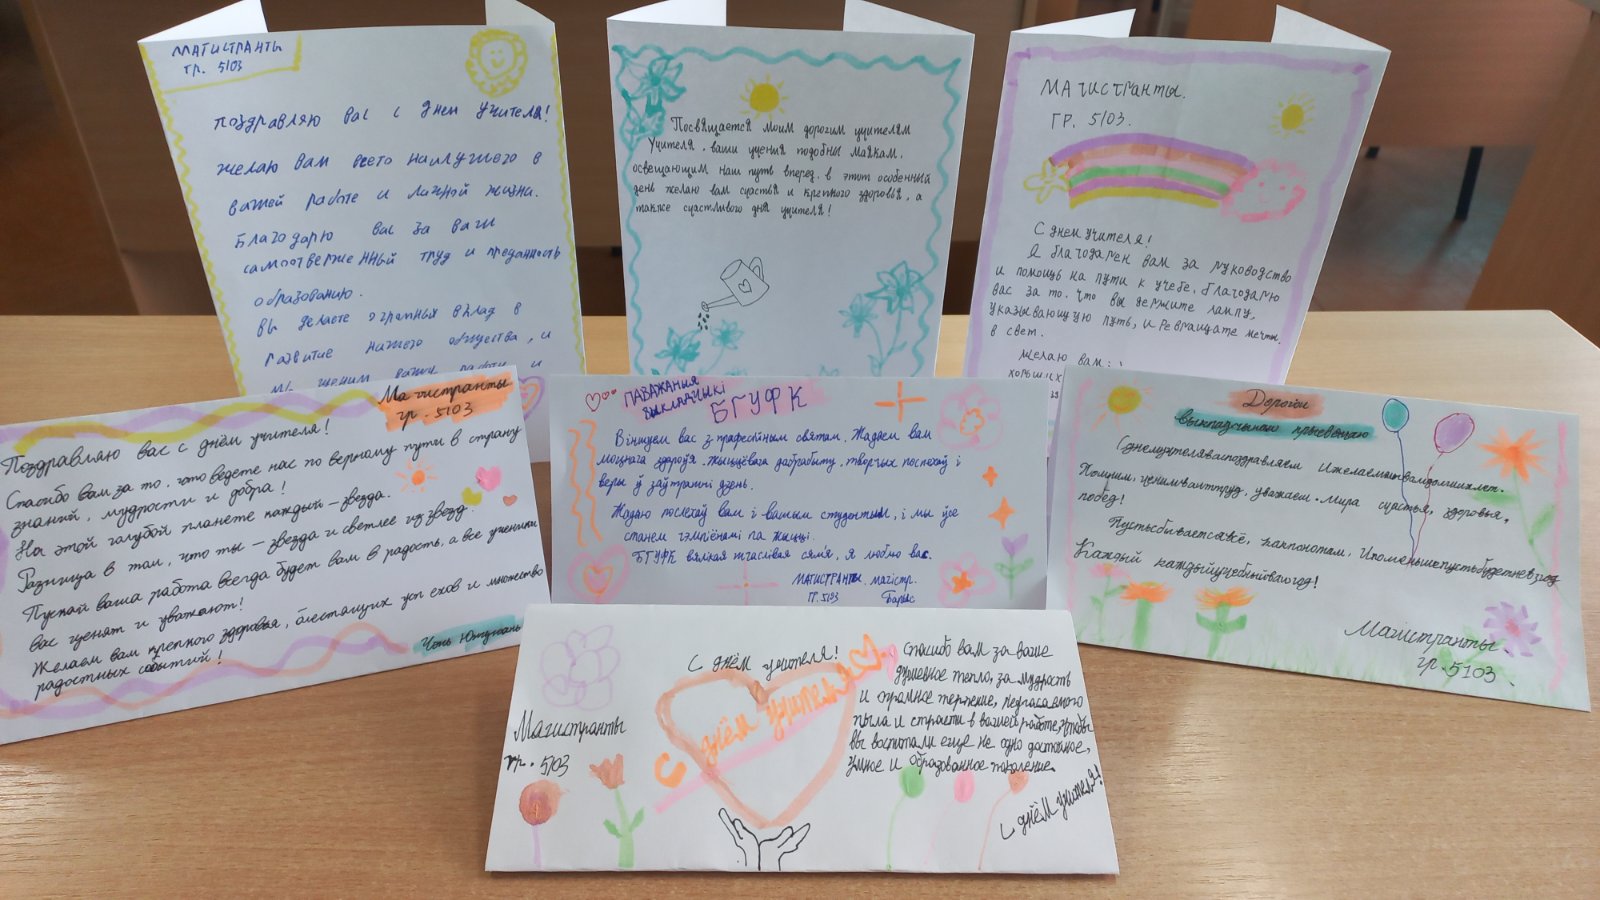 МАГИСТРАНТЫ
ГР. 5103
Поздравляю вас с днем учителя!
желаю вам всего наилучшего в
вашей работе и личной жизни.
Благодарю вас за ваш
самоотверженный труд и преданность
образованию.
вы делаете огромный вклад в
развитие нашего общества, и
мы ценим вашу работу и
Посвящается моим дорогим учителям
Учителя, ваши учения подобны маякам,
освещающим наш путь вперед. в этот особенный
день желаю вам счастья и крепкого здоровья, а
также счастливого дня учителя!
МАГИСТРАНТЫ.
ГР. 5103.
С днем учителя!
Я благодарен вам за руководство
и помощь на пути к учебе, благодарю
вас за то, что вы держите лампу,
указывающую путь, и превращаете мечты
в свет.
желаю вам:
хороших
Магистранты
гр. 5103
Поздравляю вас с днём учителя!
Спасибо вам за то, что ведете нас по верному пути в страну
знаний, мудрости и добра!
На этой голубой планете каждый – звезда.
Разница в том, что ты – звезда и светлее из звезд.
Пускай ваша работа всегда будет вам в радость, а все ученики
вас ценят и уважают!
Желаем вам крепкого здоровья, блестящих успехов и множество
радостных событий!
Чэнь
ПАВАЖАНЫЯ
ВЫКЛАДЧЫКІ
БГУФК
Віншуем вас з прафесійным святам. Жадаем вам
моцнага здароўя, жыццёвага дабрабыту, творчых поспехаў і
веры ў заўтрашні дзень.
Жадаю поспехаў вам і вашым студэнтым, і мы ўсе
станем чэмпіёнамі па жыцці.
БГУФК вялікая шчаслівая сям'я, я люблю вас.
МАГИСТРАНТЫ. магістр.
ГР. 5103
Дорогой
С днём учителя вас поздравляем И желаем вам долгих лет.
Помним, ценим ваш труд, уважаем. Мира счастья, здоровья,
побед!
Пусть сбывается всё, как по нотам, И поменьше пусть будет невзгод
Каждый каждый учебный ваш год!
Магистранты.
гр. 5103.
С днём учителя!
С днём учителя
Магистранты
гр. 5103
Спасибо вам за ваше
душевное тепло, за мудрость
и огромное терпение, негасаемого
пыла и страсти в вашей работе, чтобы
вы воспитали еще не одно достойное,
умное и образованное поколение.
С днём учителя!